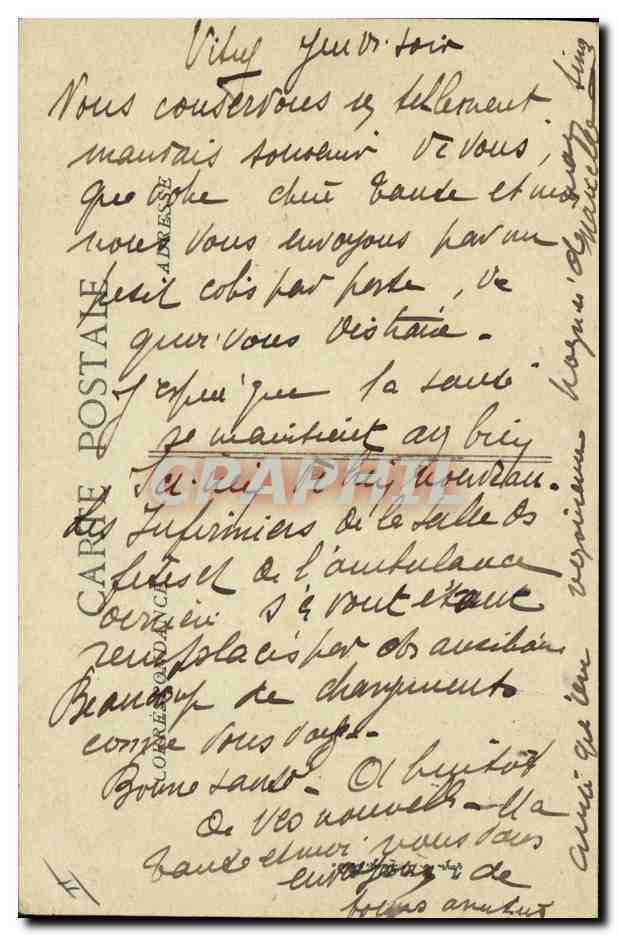 Vitry Jeudi soir
Nous conservons un tellement
mauvais souvenir de vous,
que votre chère tante et moi
nous vous envoyons par un
petit colis par poste, de
quoi vous distraire -
J'espère que la santé
se maintient au bien
Ici rien de bien nouveau -
Les Infirmiers de la salle des
fêtes et de l'ambulance
derrière s'en vont étant
remplacés par des auxiliaires
Beaucoup de changements
comme vous voyez -
Bonne santé - A bientôt
de vos nouvelles - Ma
tante et moi vous
envoyons de
bons
amitié que
Marcelle
CARTE POSTALE
CORRESPONDANCE
ADRESSE
CPAPHIL